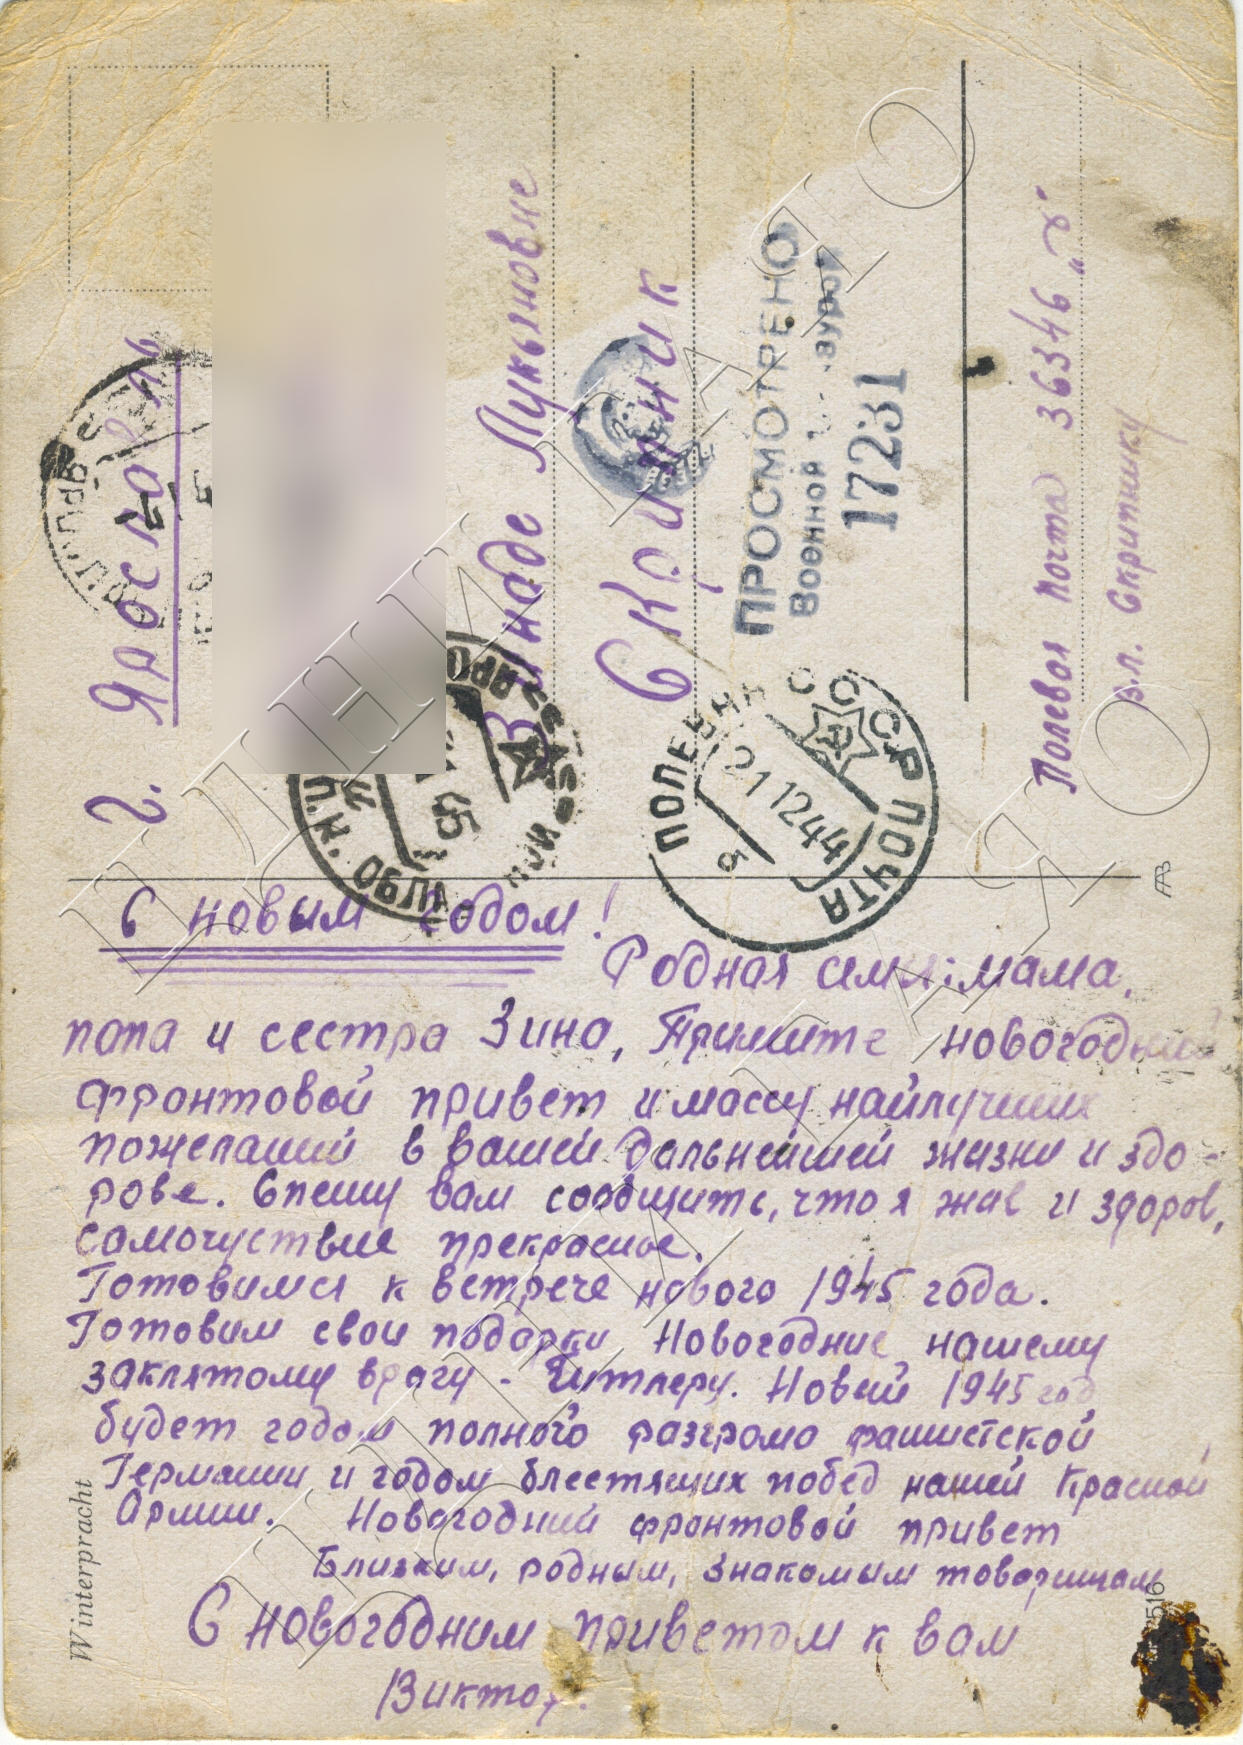 г. Ярославль
Зинаде Лукьяновне
Скрипник
ПРОСМОТРЕНО
Военной
17231
Полевая почта 36346 „б"
в.л. Скрипнику
ПОЛЕВАЯ ПОЧТА
СССР
21 12 44
б
45
ЯРО
П.К. ОБЛ
С новым годом!
Родная семья: мама,
папа и сестра Зина, Примите новогодний
фронтовой привет и массу найлучших
пожеланий в вашей дальнейшей жизни и здо-
рове. Спешу вам сообщить, что я жив и здоров,
самочуствие прекрасное.
Готовимся к встрече нового 1945 года.
Готовим свои подарки Новогодние нашему
заклятому врагу - Гитлеру. Новый 1945 год
будет годом полного разгрома фашистской
Германии и годом блестящих побед нашей Красной
Армии. Новогодний фронтовой привет
Близким, родным, знакомым товарищам
С новогодним приветом к вам
Виктор.
Winterpracht
НИНИ ГАЯНО
НИНИ ГАЯНО